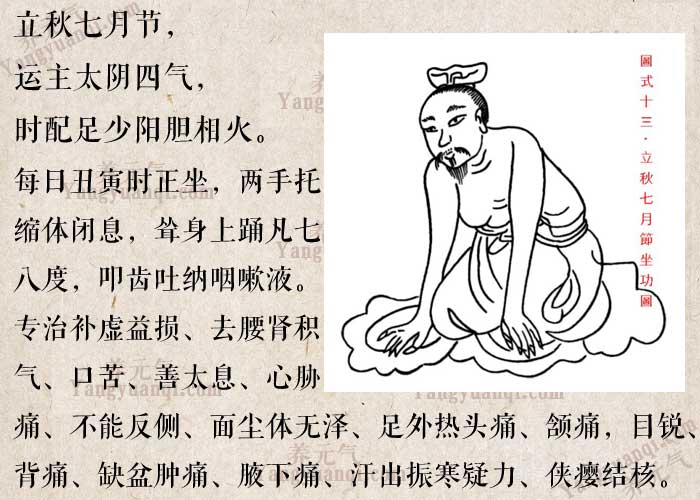 立秋七月节，
运主太阴四气，
时配足少阳胆相火。
每日丑寅时正坐，两手托
缩体闭息，耸身上踊凡七
八度，叩齿吐纳咽嗽液。
专治补虚益损、去腰肾积
气、口苦、善太息、心胁
痛、不能反侧、面尘体无泽、足外热头痛、颔痛，目锐、
背痛、缺盆肿痛、腋下痛、汗出振寒疑力、侠瘿结核。
圖式十三·立秋七月節坐功圖
养元气
Yangyuanqi.com